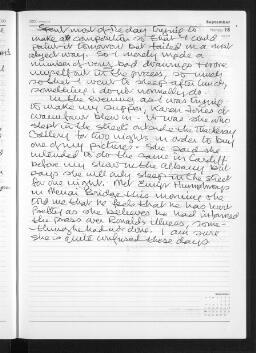 September
18
Spent most of the day trying to
make a composition so that I could
paint it tomorrow but failed in a most
abject way. So I merely made a
number of very bad drawings & wore
myself out in the process, so much
so that I went to sleep after lunch,
something I do not normally do.
In the evening as I was trying
to make my supper Karen Jones of
blew in. It was she who
slept in the street outside the Thackeray
Gallery for two nights in order to buy
one of my pictures. She said she
intended to do the same in Cardiff
before my show in the Albany but
says she will only sleep in the street
for one night. Met Emyr Humphreys
in Menai Bridge this morning. He
told me that he feels that he has hurt
as she believes he had informed
the press over Ronald's illness, some-
thing he had not done. I am sure
she is quite confused these days